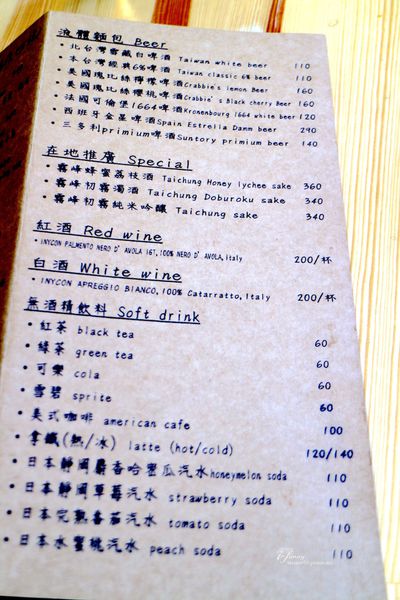 液體麵包 Beer
・北台灣雪藏白啤酒 Taiwan white beer 110
・本台灣經典6%啤酒 Taiwan classic 6% beer 110
・美國瑰比絲檸檬啤酒 Crabbie's lemon Beer 160
・美國瑰比絲櫻桃啤酒 Crabbie's Black cherry Beer 160
・法國可倫堡1664啤酒 Kronenbourg 1664 white beer 120
・西班牙金星啤酒 Spain Estrella Damm beer 290
・三多利primium啤酒 Suntory primium beer 140
在地推廣 Special
・霧峰蜂蜜荔枝酒 Taichung Honey lychee sake 360
・霧峰初霧濁酒 Taichung Doburoku sake 340
・霧峰初霧純米吟釀 Taichung sake 340
紅酒 Red wine
・INYCON PALMENTO NERO D' AVOLA IGT, 100% NERO D' AVOLA, Italy 200/杯
白酒 White wine
・INYCON APREGGIO BIANCO, 100% Catarratto, Italy 200/杯
無酒精飲料 Soft drink
・紅茶 black tea 60
・綠茶 green tea 60
・可樂 cola 60
・雪碧 sprite 60
・美式咖啡 american cafe 100
・拿鐵(熱/冰) latte (hot/cold) 120/140
・日本靜岡麝香哈密瓜汽水 honeymelon soda 110
・日本靜岡草莓汽水 strawberry soda 110
・日本完熟番茄汽水 tomato soda 110
・日本水蜜桃汽水 peach soda 110